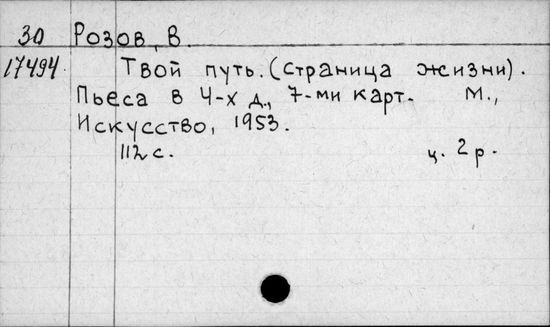 30 Розов, В.
17494 Твой путь. (Страница жизни).
Пьеса в 4-х д., 7-ми карт. М.,
Искусство, 1953.
112 с. ц. 2 р.